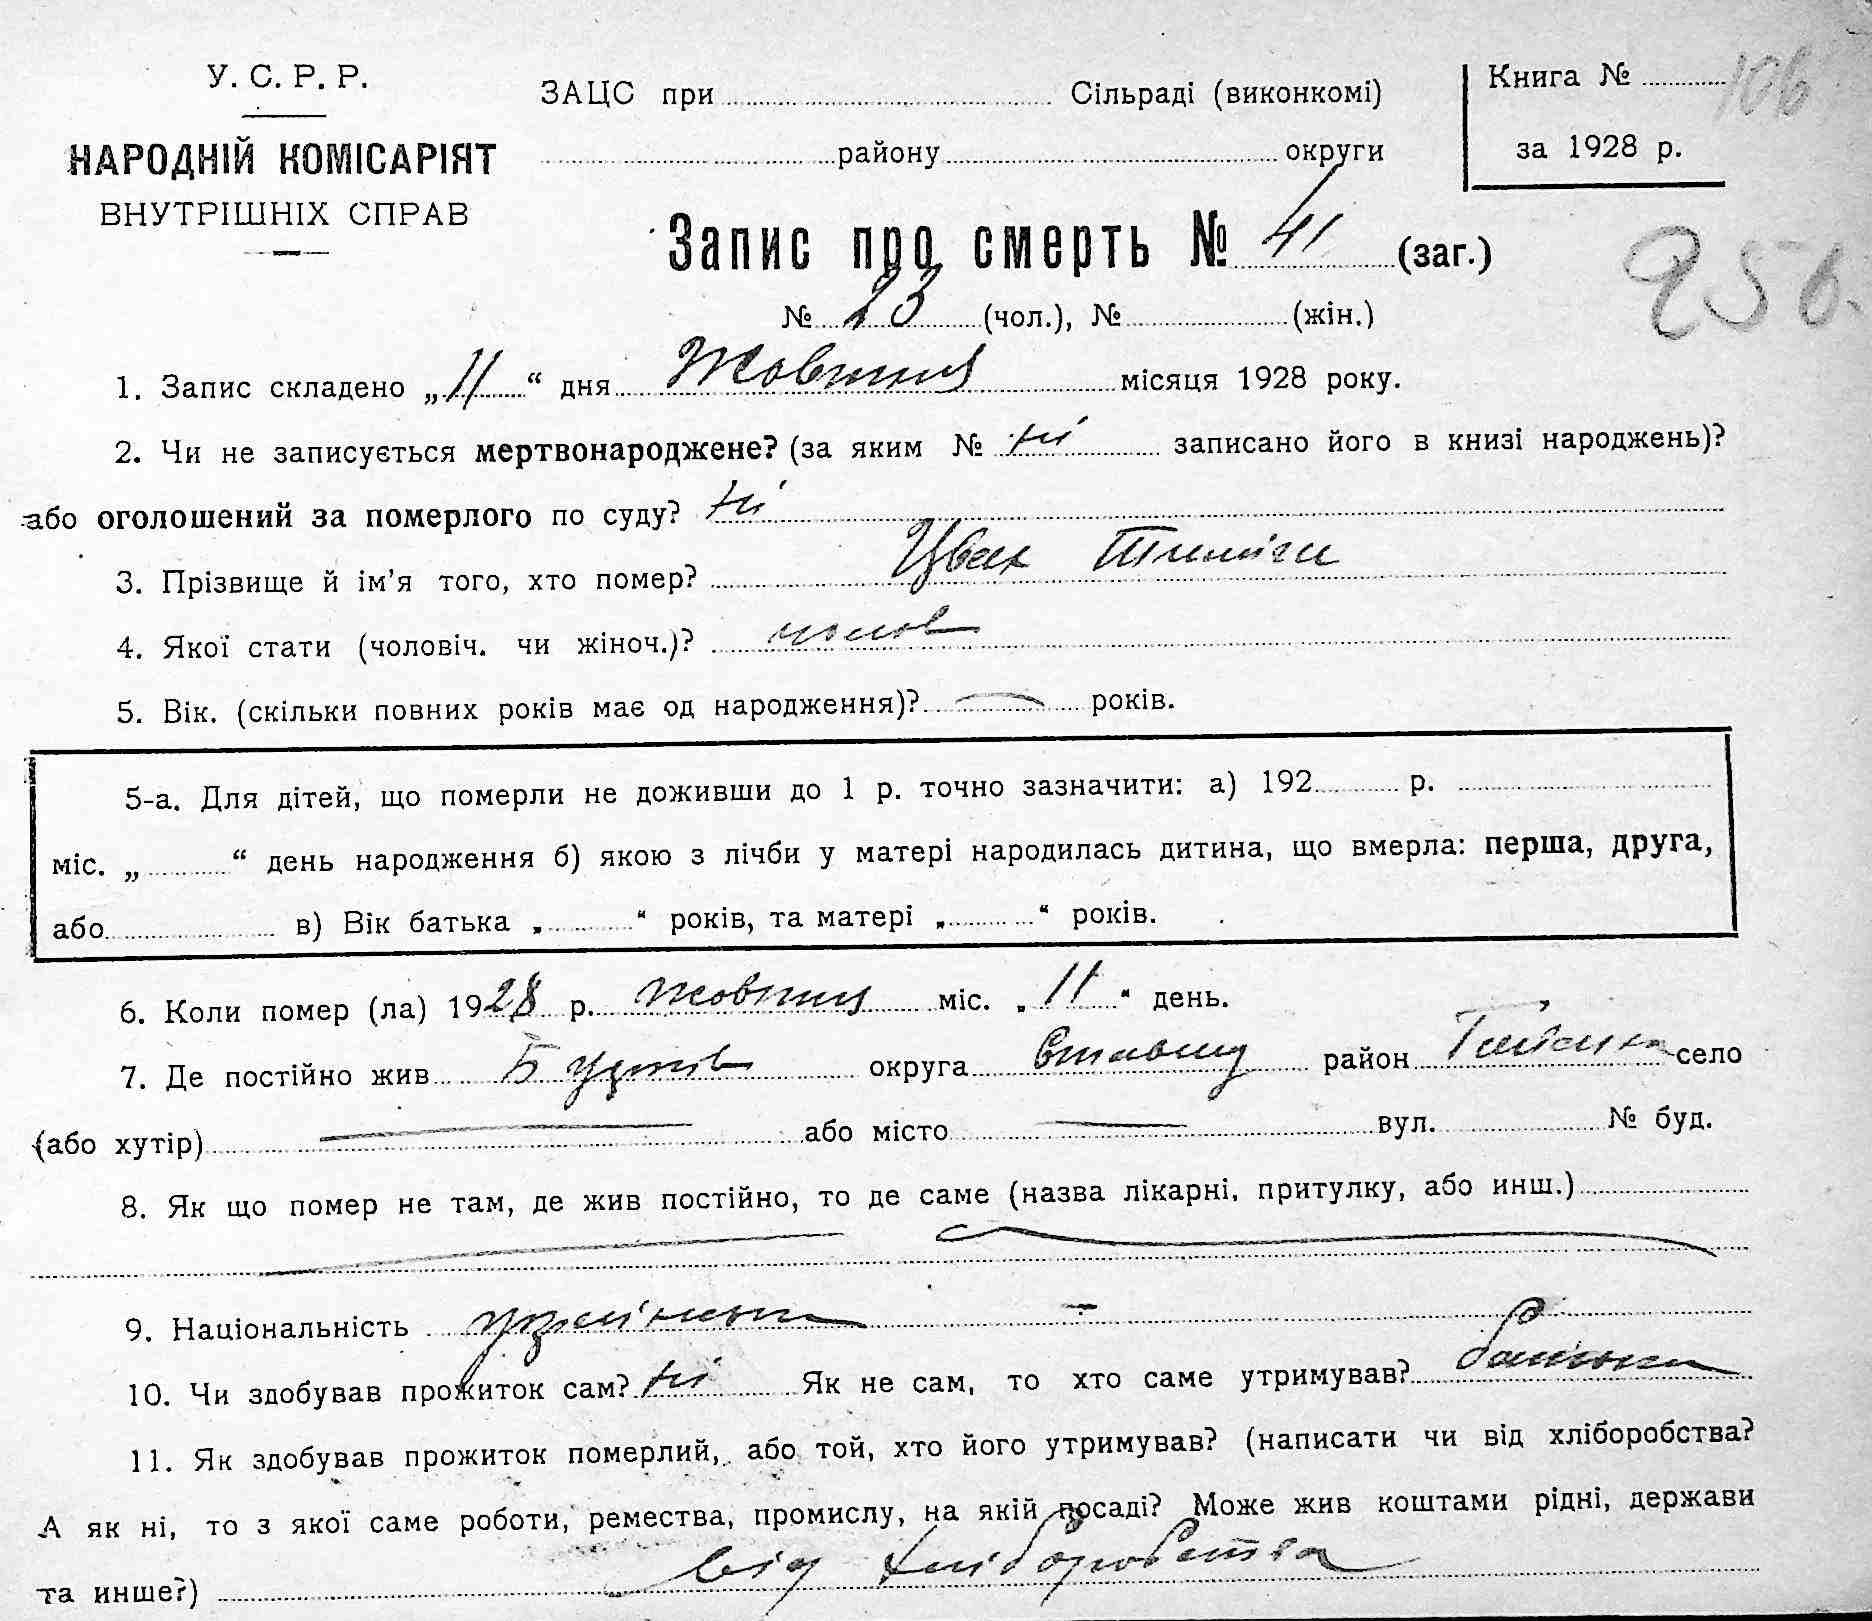 У. С. Р. Р.
НАРОДНІЙ КОМІСАРІЯТ
ВНУТРІШНІХ СПРАВ
ЗАЦС при Сільраді (виконкомі)
району округи
Книга № 106
за 1928 р.
Запис про смерть № 41 (заг.)
256.
№ 23 (чол.), № (жін.)
1. Запис складено „11“ дня Жовтня місяця 1928 року.
2. Чи не записується мертвонароджене? (за яким № ні записано його в книзі народжень)?
або оголошений за померлого по суду? ні
3. Прізвище й ім'я того, хто помер? Цвик
4. Якої стати (чоловіч. чи жіноч.)? чолов
5. Вік. (скільки повних років має од народження)? — років.
5-а. Для дітей, що померли не доживши до 1 р. точно зазначити: а) 192 р.
міс. „ “ день народження б) якою з лічби у матері народилась дитина, що вмерла: перша, друга,
або в) Вік батька „ “ років, та матері „ “ років.
6. Коли помер (ла) 1928 р. жовтня міс. „11“ день.
7. Де постійно жив округа Ставищ район село
(або хутір) — або місто — вул. № буд.
8. Як що помер не там, де жив постійно, то де саме (назва лікарні, притулку, або инш.)
9. Національність українська
10. Чи здобував прожиток сам? ні Як не сам, то хто саме утримував? батьки
11. Як здобував прожиток померлий, або той, хто його утримував? (написати чи від хліборобства?
А як ні, то з якої саме роботи, ремества, промислу, на якій посаді? Може жив коштами рідні, держави
та инше?) від хліборобства